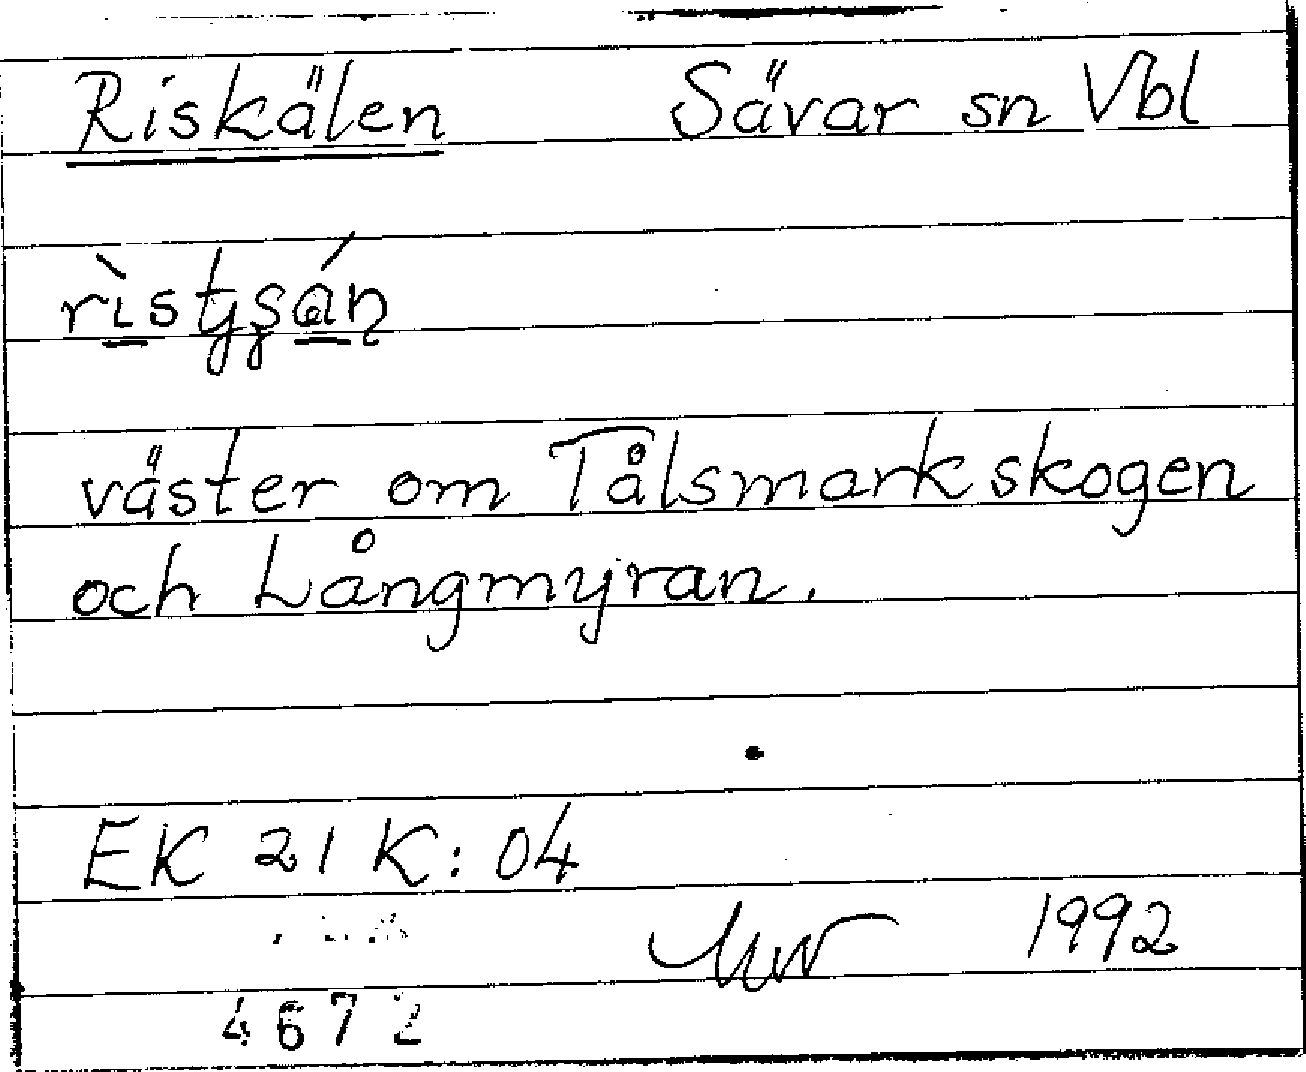 Riskälen Sävar sn Vbl
väster om Tålsmarkskogen
och Långmyran.
EK 21 K: 04
1992
4672